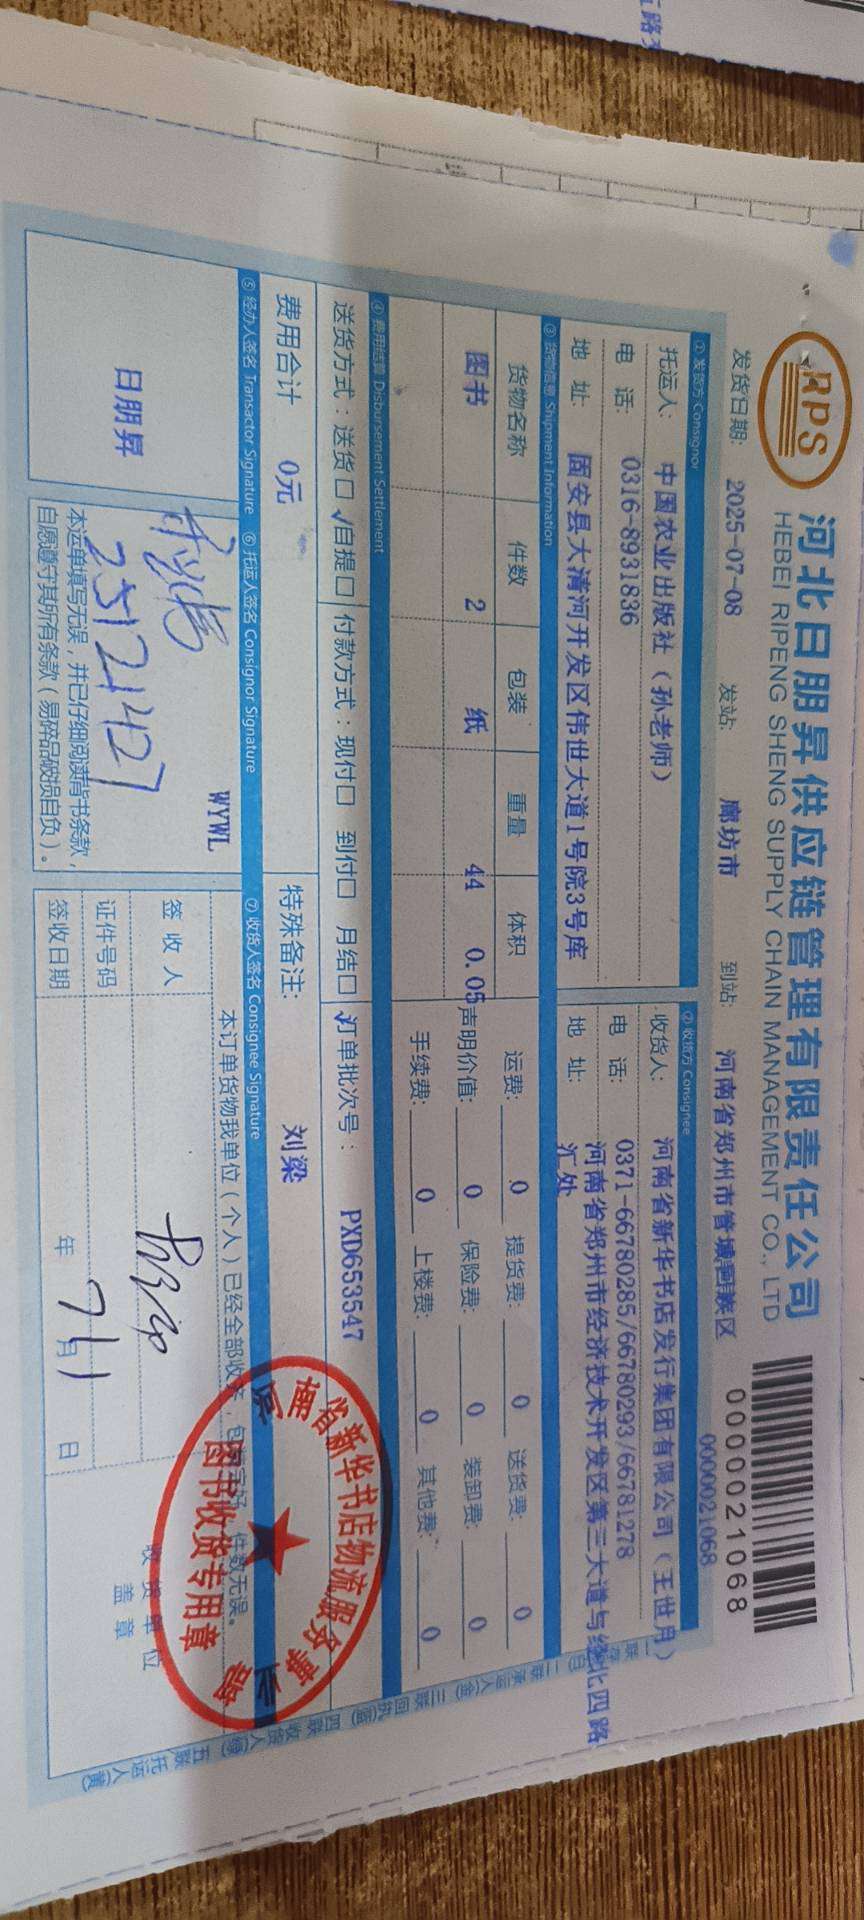 RPS
河北日朋昇供应链管理有限责任公司
HEBEI RIPENG SHENG SUPPLY CHAIN MANAGEMENT CO., LTD
0000021068
发货日期: 2025-07-08 发站: 廊坊市 到站: 河南省郑州市管城回族区
0000021068
① 发货方 Consignor
托运人: 中国农业出版社（孙老师）
电 话: 0316-8931836
地 址: 固安县大清河开发区伟世大道1号院3号库
② 收货方 Consignee
收货人: 河南省新华书店发行集团有限公司（王世月）
电 话: 0371-66780285/66780293/66781278
地 址: 河南省郑州市经济技术开发区第三大道与经北四路
汇处
③ 货物信息 Shipment Information
货物名称 件数 包装 重量 体积
图书 2 纸 44 0.05
运费: 0 提货费: 0 送货费: 0
声明价值: 0 保险费: 0 装卸费: 0
手续费: 0 上楼费: 0 其他费: 0
④ 费用结算 Disbursement Settlement
送货方式：送货□ √自提□ 付款方式：现付□ 到付□ 月结□ √
订单批次号： PXD653547
费用合计 0元
特殊备注: 刘梁
⑤ 经办人签名 Transactor Signature ⑥ 托运人签名 Consignor Signature ⑦ 收货人签名 Consignee Signature
日朋昇
WYWL
25121427
本运单填写无误，并已仔细阅读背书条款，
自愿遵守其所有条款（易碎品破损自负）。
本订单货物我单位（个人）已经全部收齐，包装完好，件数无误。
签 收 人
证件号码
签收日期 年 7月 11 日
收 货 单 位
盖 章
河南省新华书店物流服务事业部
图书收货专用章
一联存
二联承运人(金)
三联回执(蓝)
四联收货人(绿)
五联托运人(黄)